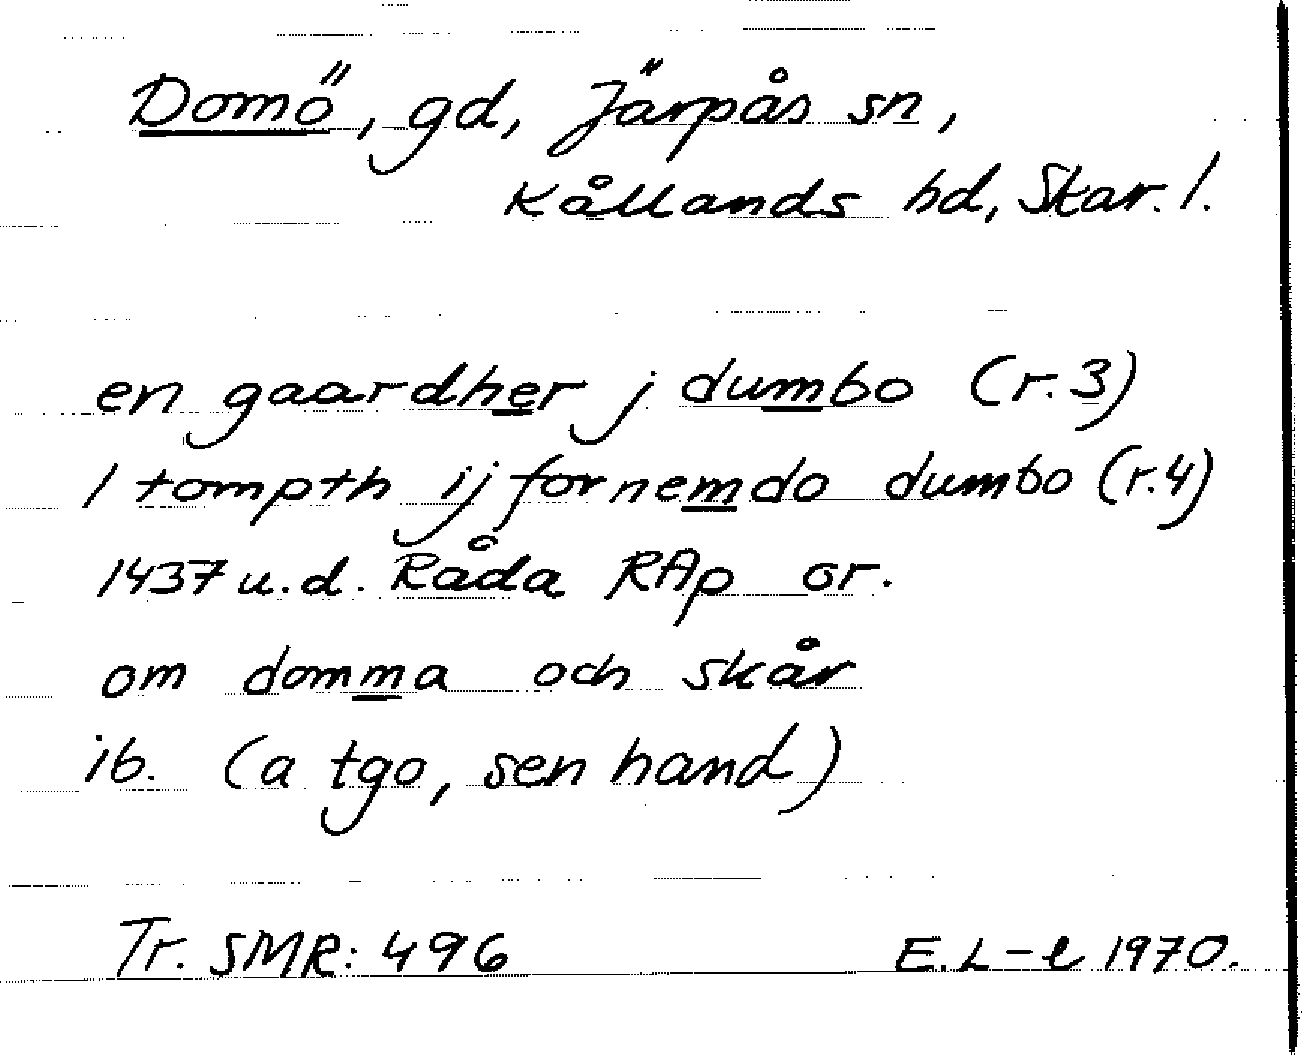 Domö, gd, Järpås sn,
Kållands hd, Skar. l.
en gaardher j dumbo (r. 3)
1 tompth ij fornemdo dumbo (r. 4)
1437 u.d. Råda RAp or.
om domma och skår
ib. (a tgo, sen hand)
Tr. SMR: 496 E. L-l 1970.